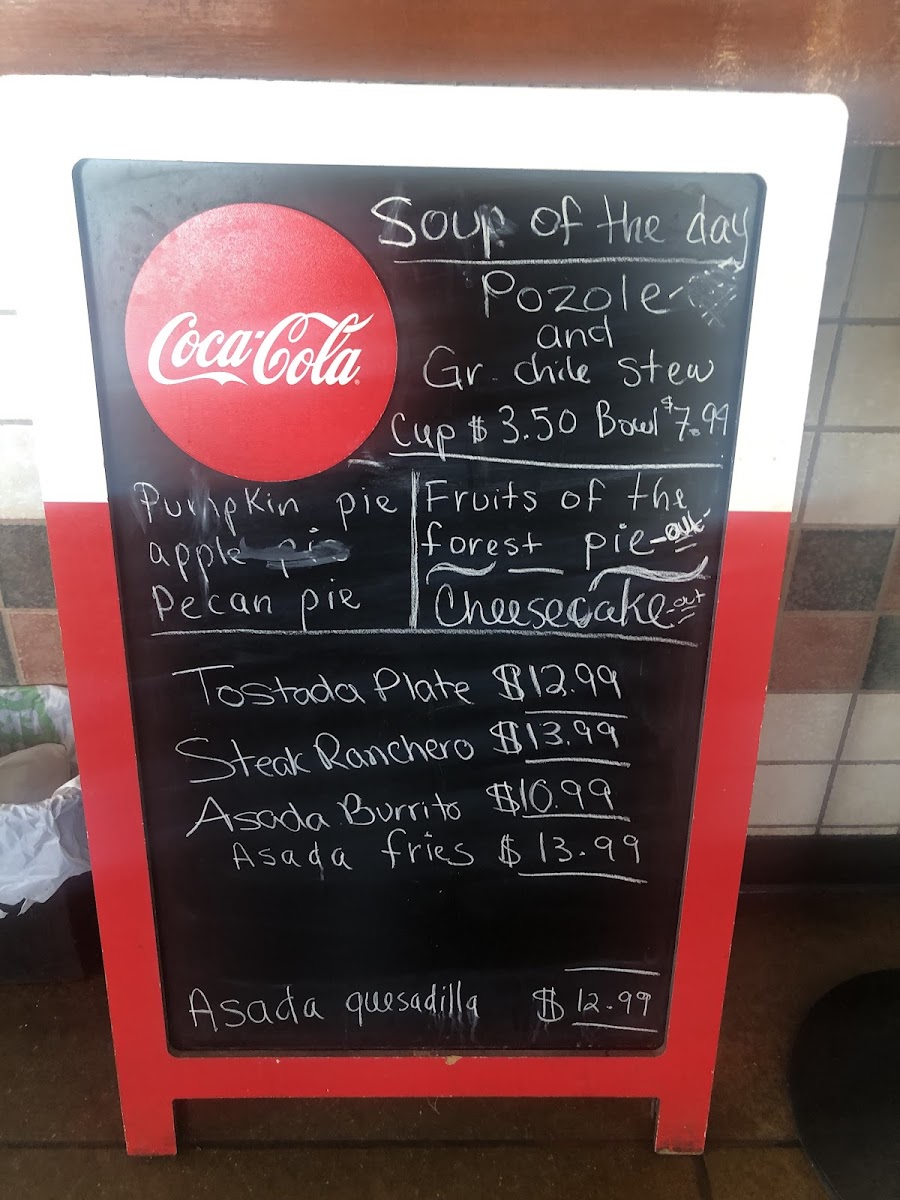 Coca-Cola
Soup of the day
Pozole
and
Gr. chile stew
Cup $3.50 Bowl $7.99
Pumpkin pie
apple pie
Pecan pie
Fruits of the
forest pie-out
Cheesecake-out
Tostada Plate $12.99
Steak Ranchero $13.99
Asada Burrito $10.99
Asada fries $13.99
Asada quesadilla $12.99